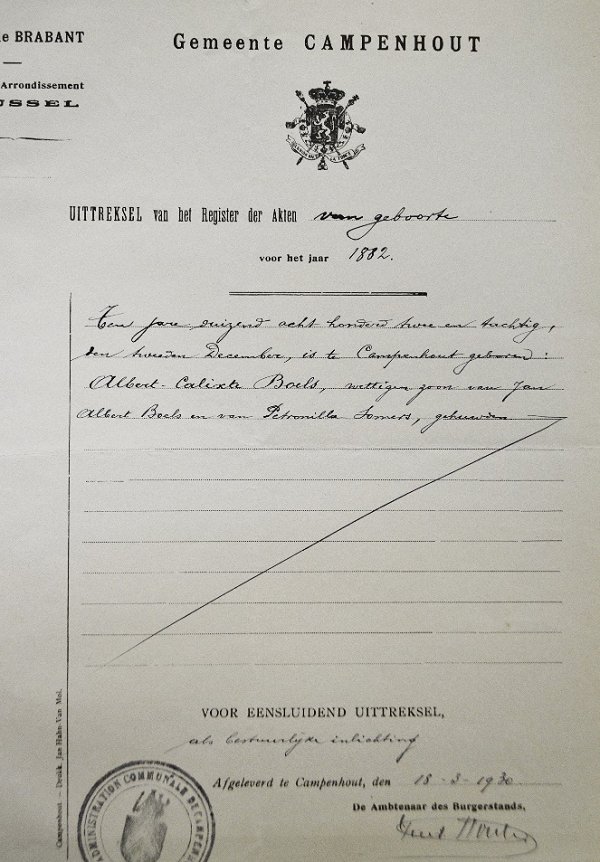 e BRABANT
Gemeente CAMPENHOUT
Arrondissement
USSEL
UITTREKSEL van het Register der Akten van geboorte
voor het jaar 1882.
Ten jare duizend acht honderd twee en tachtig,
den tweeden December, is te Campenhout geboren:
Albert-Calixte Boels, wettigen zoon van Jan
Albert Boels en van Petronilla Somers, gehuwden
VOOR EENSLUIDEND UITTREKSEL,
als bestuurlijke inlichting
Afgeleverd te Campenhout, den 18-3-1930
De Ambtenaar des Burgerstands,
ADMINISTRATION COMMUNALE DE CAMPEN
Campenhout - Drukk. Jan Hahn-Van Mol.